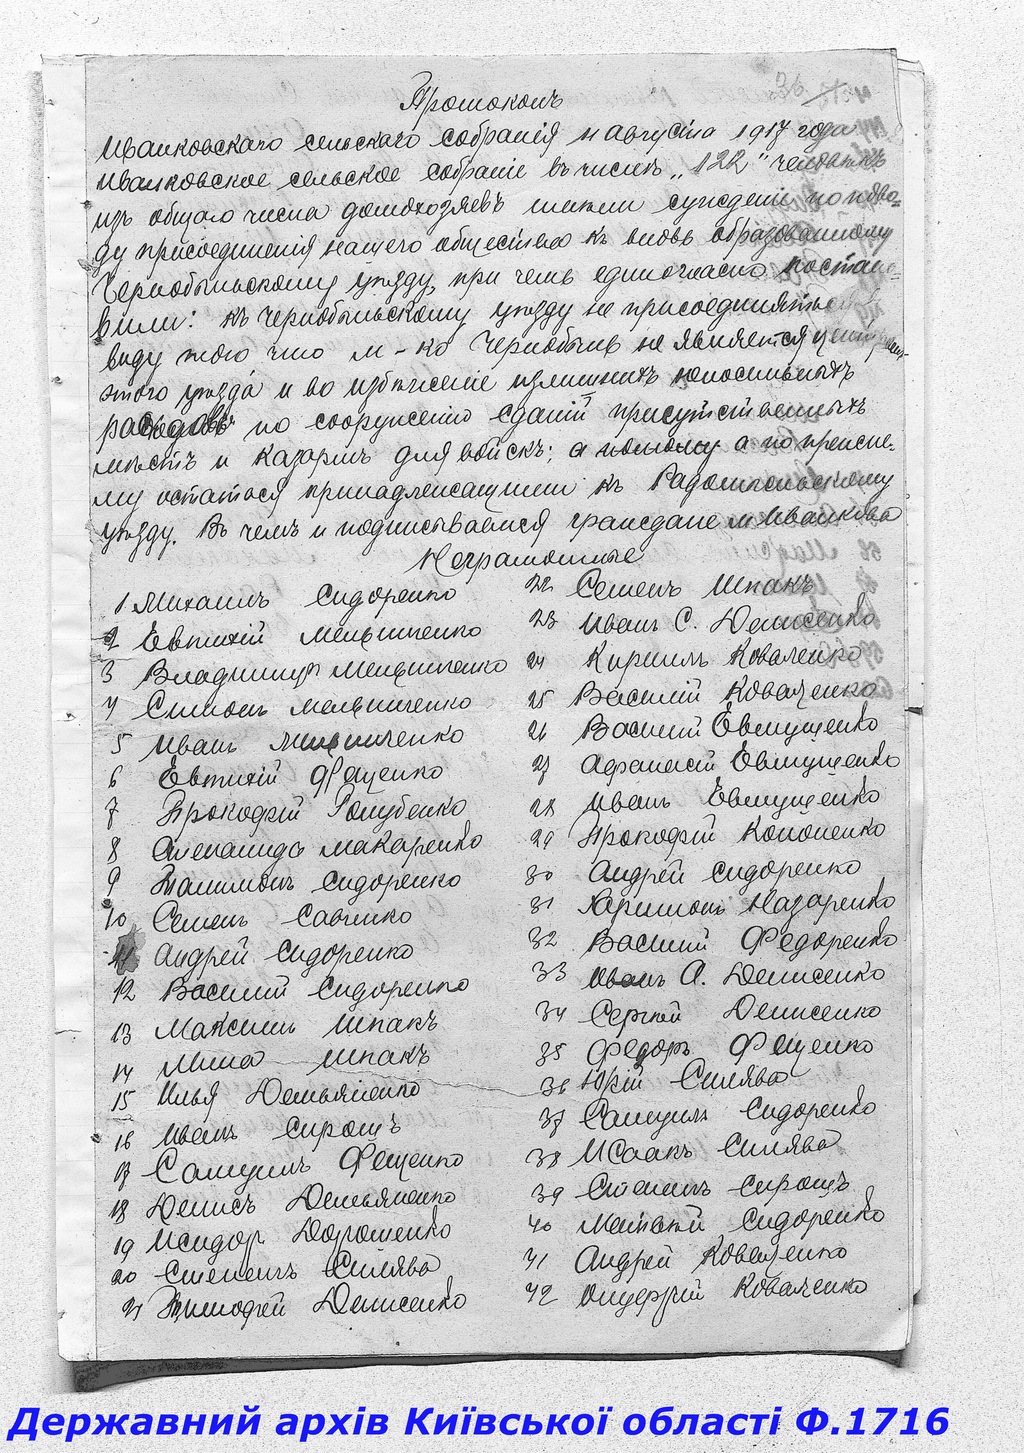 36
Протоколъ
Иванковскаго сельскаго собранія 11 августа 1917 года
Иванковское сельское собраніе въ числѣ „122" человѣкъ
изъ общаго числа домохозяевъ имѣли сужденіе по пово-
ду присоединенія нашего общества къ вновь образованному
Чернобыльскому уѣзду, при чемъ единогласно постано-
вили: къ Чернобыльскому уѣзду не присоединяться в
виду того что м-ко Чернобыль не является центромъ
этого уѣзда и во избѣжаніе излишнихъ
расходовъ по сооруженію зданій присутственныхъ
мѣстъ и казармъ для войскъ; а потому а по прежне-
му остаться принадлежащими къ Радомысльскому
уѣзду. Въ чемъ и подписываемся граждане м Иванкова
Неграмотные
1 Михаилъ Сидоренко
2 Евтихій Мельниченко
3 Владимиръ Мельниченко
4 Симонъ Мельниченко
5 Иванъ Мельниченко
6 Евтихій Фещенко
7 Прокофій Голубенко
8 Степанидъ Макаренко
9 Палимонъ Сидоренко
10 Семенъ Савченко
11 Андрей Сидоренко
12 Василий Сидоренко
13 Максимъ Шпакъ
14 Миша Шпакъ
15 Илья Демьяненко
16 Иванъ Сирощъ
17 Самуилъ Фещенко
18 Денисъ Демьяненко
19 Исидор Дорошенко
20 Степенъ Силява
21 Тимофей Денисенко
22 Семенъ Шпакъ
23 Иванъ С. Денисенко
24 Кирилъ Коваленко
25 Василій Коваленко
26 Василий Евтущенко
27 Афанасій Евтущенко
28 Иванъ Евтущенко
29 Прокофій Кононенко
30 Андрей Сидоренко
31 Харитонъ Назаренко
32 Василий Федоренко
33 Иванъ А. Денисенко
34 Сергей Денисенко
35 Федоръ Фещенко
36 Юрій Силява
37 Самуилъ Сидоренко
38 Исаакъ Силява
39 Степенъ Сирощъ
40 Сидоренко
41 Андрей Коваленко
42 Коваленко
Державний архів Київської області Ф.1716